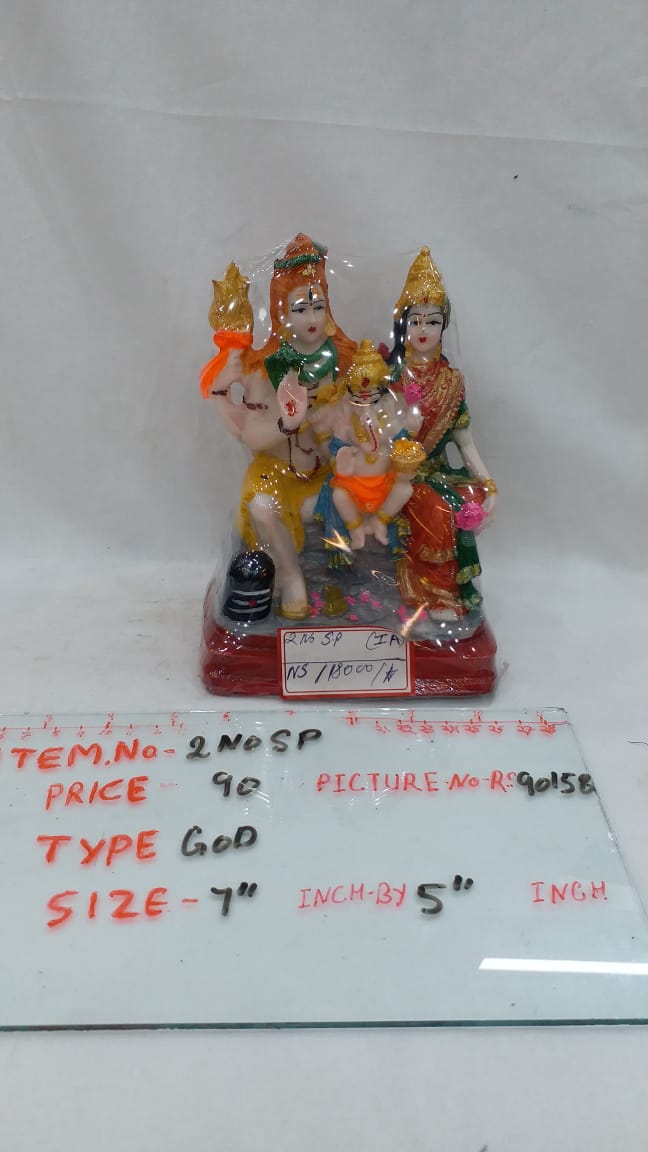 2 No SP (IA)
NS /18000/
ITEM.No- 2 NO SP
PRICE - 90 PICTURE-No-RS 90158
TYPE GOD
SIZE - 7" INCH-BY 5" INCH